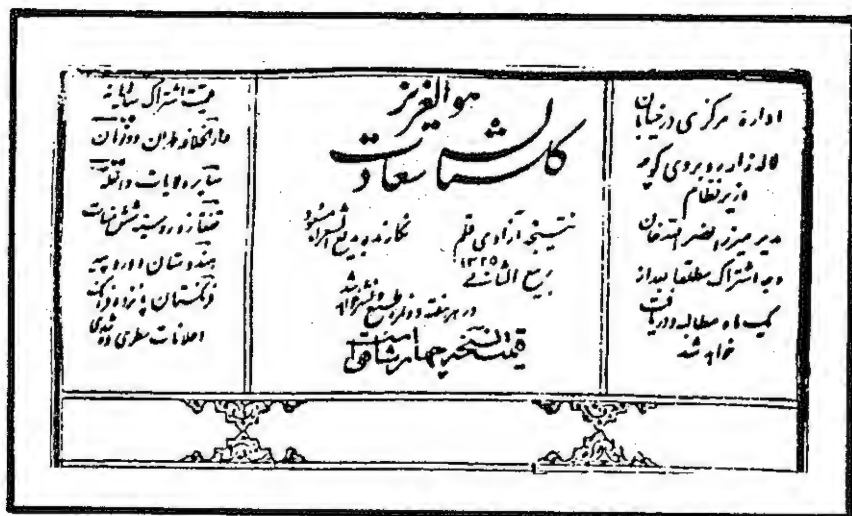 اداره مرکزی در خیابان
لاله زار روبروی کوچه
وزیر نظام
مدیر میرزا نصر الله خان
وجه اشتراک مطلقا بعد از
یک ماه مطالبه و دریافت
خواهد شد
هوالعزیز
گلستان سعادت
نتیجه آزادی قلم
نگارنده بدیع الشعراء
ربیع الثانی ۱۳۲۵
در هر هفته دو نمره طبع و نشر خواهد شد
قیمت نسخه چهار شاهی است
قیمت اشتراک سالیانه
طهران دو تومان
سایر ولایات داخله
قفقاز و روسیه شش منات
هندوستان دو روپیه
فرنگستان پانزده فرانک
اعلانات سطری